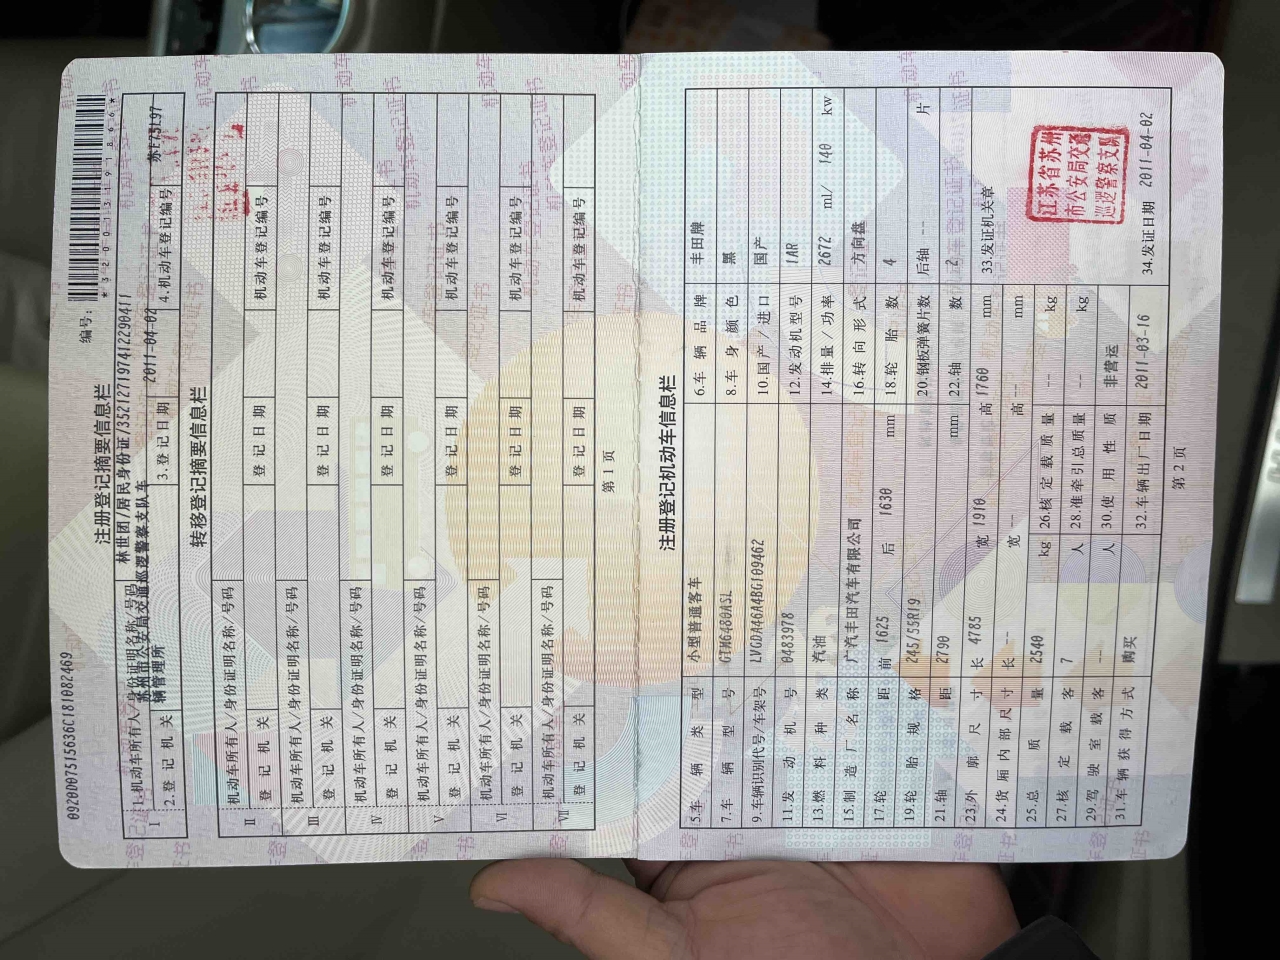 0920007515636C181082469
编号:
*320013191866*
注册登记摘要信息栏
Ⅰ
1.机动车所有人/身份证明名称/号码 林世团/居民身份证/352127197412290411
2.登记机关 苏州市公安局交通巡逻警察支队车辆管理所 3.登记日期 2011-04-02 4.机动车登记编号 苏E75L97
转移登记摘要信息栏
Ⅱ
机动车所有人/身份证明名称/号码
登记机关 登记日期 机动车登记编号
Ⅲ
机动车所有人/身份证明名称/号码
登记机关 登记日期 机动车登记编号
Ⅳ
机动车所有人/身份证明名称/号码
登记机关 登记日期 机动车登记编号
Ⅴ
机动车所有人/身份证明名称/号码
登记机关 登记日期 机动车登记编号
Ⅵ
机动车所有人/身份证明名称/号码
登记机关 登记日期 机动车登记编号
Ⅶ
机动车所有人/身份证明名称/号码
登记机关 登记日期 机动车登记编号
第1页
注册登记机动车信息栏
5.车辆类型 小型普通客车 6.车辆品牌 丰田牌
7.车辆型号 GTM6480ASL 8.车身颜色 黑
9.车辆识别代号/车架号 LVGDA46A4BG109462 10.国产/进口 国产
11.发动机号 0483978 12.发动机型号 1AR
13.燃料种类 汽油 14.排量/功率 2672 ml/ 140 kw
15.制造厂名称 广汽丰田汽车有限公司 16.转向形式 方向盘
17.轮距 前 1625 后 1630 mm 18.轮胎数 4
19.轮胎规格 245/55R19 20.钢板弹簧片数 后轴 -- 片
21.轴距 2790 mm 22.轴数 2
23.外廓尺寸 长 4785 宽 1910 高 1760 mm
24.货厢内部尺寸 长 -- 宽 -- 高 -- mm
33.发证机关章
江苏省苏州市公安局交通巡逻警察支队
25.总质量 2540 kg 26.核定载质量 -- kg
27.核定载客 7 人 28.准牵引总质量 -- kg
29.驾驶室载客 -- 人 30.使用性质 非营运
31.车辆获得方式 购买 32.车辆出厂日期 2011-03-16 34.发证日期 2011-04-02
第2页